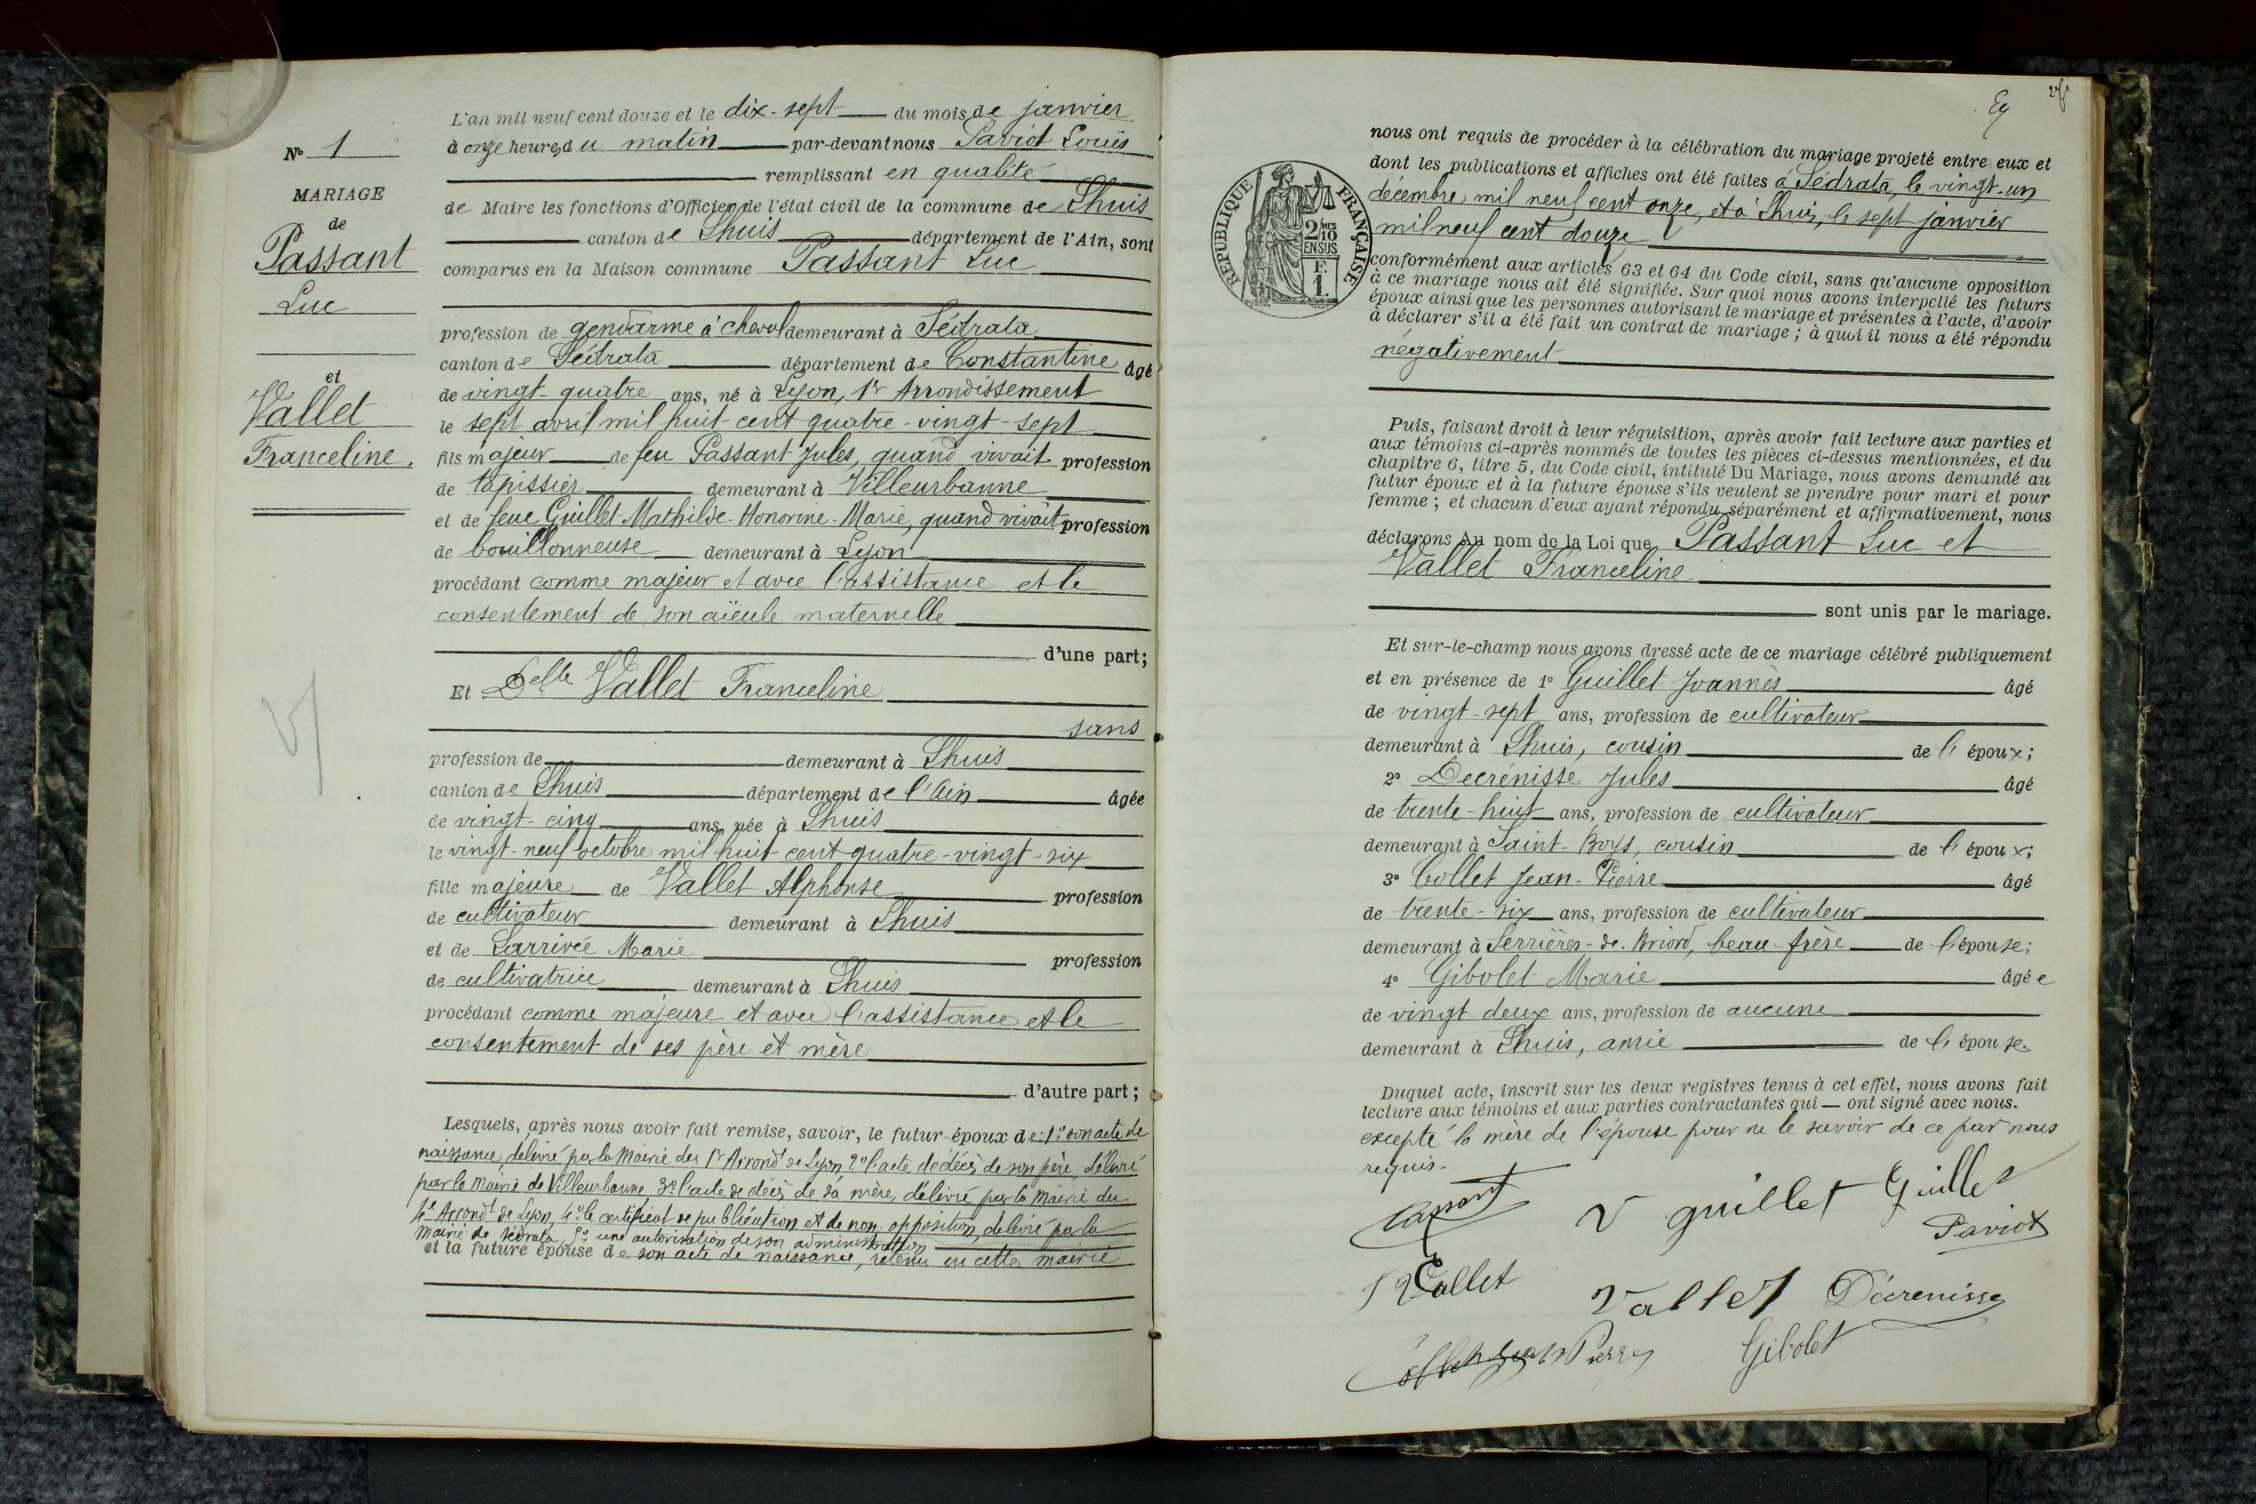 N° 1
MARIAGE
de
Passant
Luc
et
Vallet
Franceline.
L'an mil neuf cent douze et le dix-sept du mois de janvier
à onze heures du matin par-devant nous Paviot Louis
remplissant en qualité
de Maire les fonctions d'Officier de l'état civil de la commune de Lhuis
canton de Lhuis département de l'Ain, sont
comparus en la Maison commune Passant Luc
profession de gendarme à cheval demeurant à Sédrata
canton de Sédrata département de Constantine âgé
de vingt-quatre ans, né à Lyon, 1er Arrondissement
le sept avril mil huit-cent quatre-vingt-sept
fils majeur de feu Passant Jules, quand vivait profession
de tapissier demeurant à Villeurbanne
et de feue Guillet Mathilde-Honorine-Marie, quand vivait profession
de bouillonneuse demeurant à Lyon
procédant comme majeur et avec l'assistance et le
consentement de son aïeule maternelle
d'une part;
Et Delle Vallet Franceline
sans
profession de demeurant à Lhuis
canton de Lhuis département de l'Ain âgée
de vingt-cinq ans, née à Lhuis
le vingt-neuf octobre mil huit-cent quatre-vingt-six
fille majeure de Vallet Alphonse profession
de cultivateur demeurant à Lhuis
et de Larrivée Marie profession
de cultivatrice demeurant à Lhuis
procédant comme majeure et avec l'assistance et le
consentement de ses père et mère
d'autre part;
Lesquels, après nous avoir fait remise, savoir, le futur époux de: 1° son acte de
naissance, délivré par la Mairie du 1er Arrondt de Lyon 2° l'acte de décès de son père, délivré
par la Mairie de Villeurbanne, 3° l'acte de décès de sa mère, délivré par la Mairie du
4e Arrondt de Lyon, 4° le certificat de publication et de non opposition, délivré par la
Mairie de Sédrata, 5° une autorisation de son administration
et la future épouse de son acte de naissance, retenu en cette mairie
nous ont requis de procéder à la célébration du mariage projeté entre eux et
dont les publications et affiches ont été faites à Sédrata, le vingt-un
décembre mil neuf cent onze, et à Lhuis, le sept janvier
mil neuf cent douze
RÉPUBLIQUE FRANÇAISE
2/10MES
EN SUS
F.
1.
conformément aux articles 63 et 64 du Code civil, sans qu'aucune opposition
à ce mariage nous ait été signifiée. Sur quoi nous avons interpellé les futurs
époux ainsi que les personnes autorisant le mariage et présentes à l'acte, d'avoir
à déclarer s'il a été fait un contrat de mariage; à quoi il nous a été répondu
négativement
Puis, faisant droit à leur réquisition, après avoir fait lecture aux parties et
aux témoins ci-après nommés de toutes les pièces ci-dessus mentionnées, et du
chapitre 6, titre 5, du Code civil, intitulé Du Mariage, nous avons demandé au
futur époux et à la future épouse s'ils veulent se prendre pour mari et pour
femme; et chacun d'eux ayant répondu séparément et affirmativement, nous
déclarons Au nom de la Loi que Passant Luc et
Vallet Franceline
sont unis par le mariage.
Et sur-le-champ nous avons dressé acte de ce mariage célébré publiquement
et en présence de 1° Guillet Joannès âgé
de vingt-sept ans, profession de cultivateur
demeurant à Lhuis, cousin de l'époux;
2° Decrénisse Jules âgé
de trente-huit ans, profession de cultivateur
demeurant à Saint-Boys, cousin de l'époux;
3° Collet Jean-Pierre âgé
de trente-six ans, profession de cultivateur
demeurant à Serrières-de-Briord, beau-frère de l'épouse;
4° Gibolet Marie âgée
de vingt deux ans, profession de aucune
demeurant à Lhuis, amie de l'épouse.
Duquel acte, inscrit sur les deux registres tenus à cet effet, nous avons fait
lecture aux témoins et aux parties contractantes qui — ont signé avec nous.
excepté la mère de l'épouse pour ne le savoir de ce par nous
requis.
Passant V guillet Guillet
Paviot
Vallet Vallet Décrenisse
Pierre Gibolet